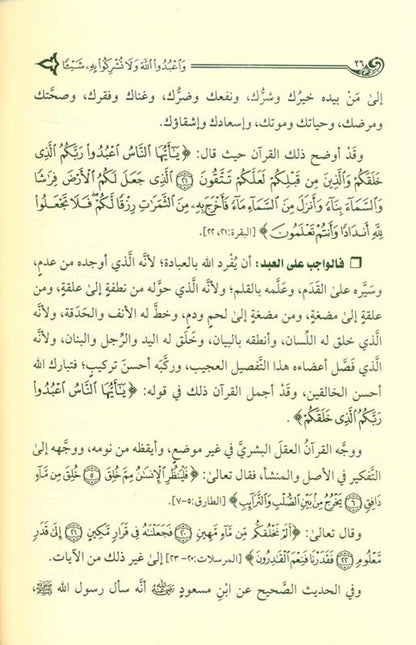 ٢٦ وَاعْبُدُوا اللَّهَ وَلَا تُشْرِكُوا بِهِ شَيْئًا
إلىٰ مَنْ بيده خيرُك وشرُّك، ونفعك وضرُّك، وغناك وفقرك، وصحَّتك
ومرضك، وحياتك وموتك، وإسعادك وإشقاؤك.
وقَدْ أوضح ذلك القرآن حيث قال: ﴿يَٰٓأَيُّهَا ٱلنَّاسُ ٱعْبُدُوا۟ رَبَّكُمُ ٱلَّذِى
خَلَقَكُمْ وَٱلَّذِينَ مِن قَبْلِكُمْ لَعَلَّكُمْ تَتَّقُونَ ۝٢١ ٱلَّذِى جَعَلَ لَكُمُ ٱلْأَرْضَ فِرَٰشًا
وَٱلسَّمَآءَ بِنَآءً وَأَنزَلَ مِنَ ٱلسَّمَآءِ مَآءً فَأَخْرَجَ بِهِۦ مِنَ ٱلثَّمَرَٰتِ رِزْقًا لَّكُمْ ۖ فَلَا تَجْعَلُوا۟
لِلَّهِ أَندَادًا وَأَنتُمْ تَعْلَمُونَ﴾ [البقرة: ٢١، ٢٢].
❒ فالواجب على العبد: أن يُفْرد الله بالعبادة؛ لأنَّه الَّذي أوجده من عدمٍ،
وسَيَّره علىٰ القَدَم، وعَلَّمه بالقلم؛ ولأنَّه الَّذي حوَّله من نطفةٍ إلىٰ علقةٍ، ومن
علقةٍ إلىٰ مضغةٍ، ومن مضغةٍ إلىٰ لحمٍ ودمٍ، وخطَّ له الأنف والحَدَقة، ولأنَّه
الَّذي خلق له اللِّسان، وأنطقه بالبيان، وخَلَق له اليد والرِّجل والبنان، ولأنَّه
الَّذي فَصَّل أعضاءه هذا التَّفصيل العجيب، وركَّبه أحسنَ تركيبٍ؛ فتبارك الله
أحسن الخالقين، وقَدْ أجمل القرآن ذلك في قوله: ﴿يَٰٓأَيُّهَا ٱلنَّاسُ ٱعْبُدُوا۟
رَبَّكُمُ ٱلَّذِى خَلَقَكُمْ﴾.
ووجَّه القرآنُ العقلَ البشريَّ في غير موضعٍ، وأيقظه من نومه، ووجَّهه إلىٰ
التَّفكير في الأصل والمنشأ، فقال تعالىٰ: ﴿فَلْيَنظُرِ ٱلْإِنسَٰنُ مِمَّ خُلِقَ ۝٥ خُلِقَ مِن مَّآءٍ
دَافِقٍ ۝٦ يَخْرُجُ مِنۢ بَيْنِ ٱلصُّلْبِ وَٱلتَّرَآئِبِ﴾ [الطارق: ٥-٧].
وقال تعالىٰ: ﴿أَلَمْ نَخْلُقكُّم مِّن مَّآءٍ مَّهِينٍ ۝٢٠ فَجَعَلْنَٰهُ فِى قَرَارٍ مَّكِينٍ ۝٢١ إِلَىٰ قَدَرٍ
مَّعْلُومٍ ۝٢٢ فَقَدَرْنَا فَنِعْمَ ٱلْقَٰدِرُونَ﴾ [المرسلات: ٢٠-٢٣] إلىٰ غير ذلك من الآيات.
وفي الحديث الصَّحيح عن ابْنِ مسعودٍ رضي الله عنه أنَّه سأل رسول الله ﷺ،